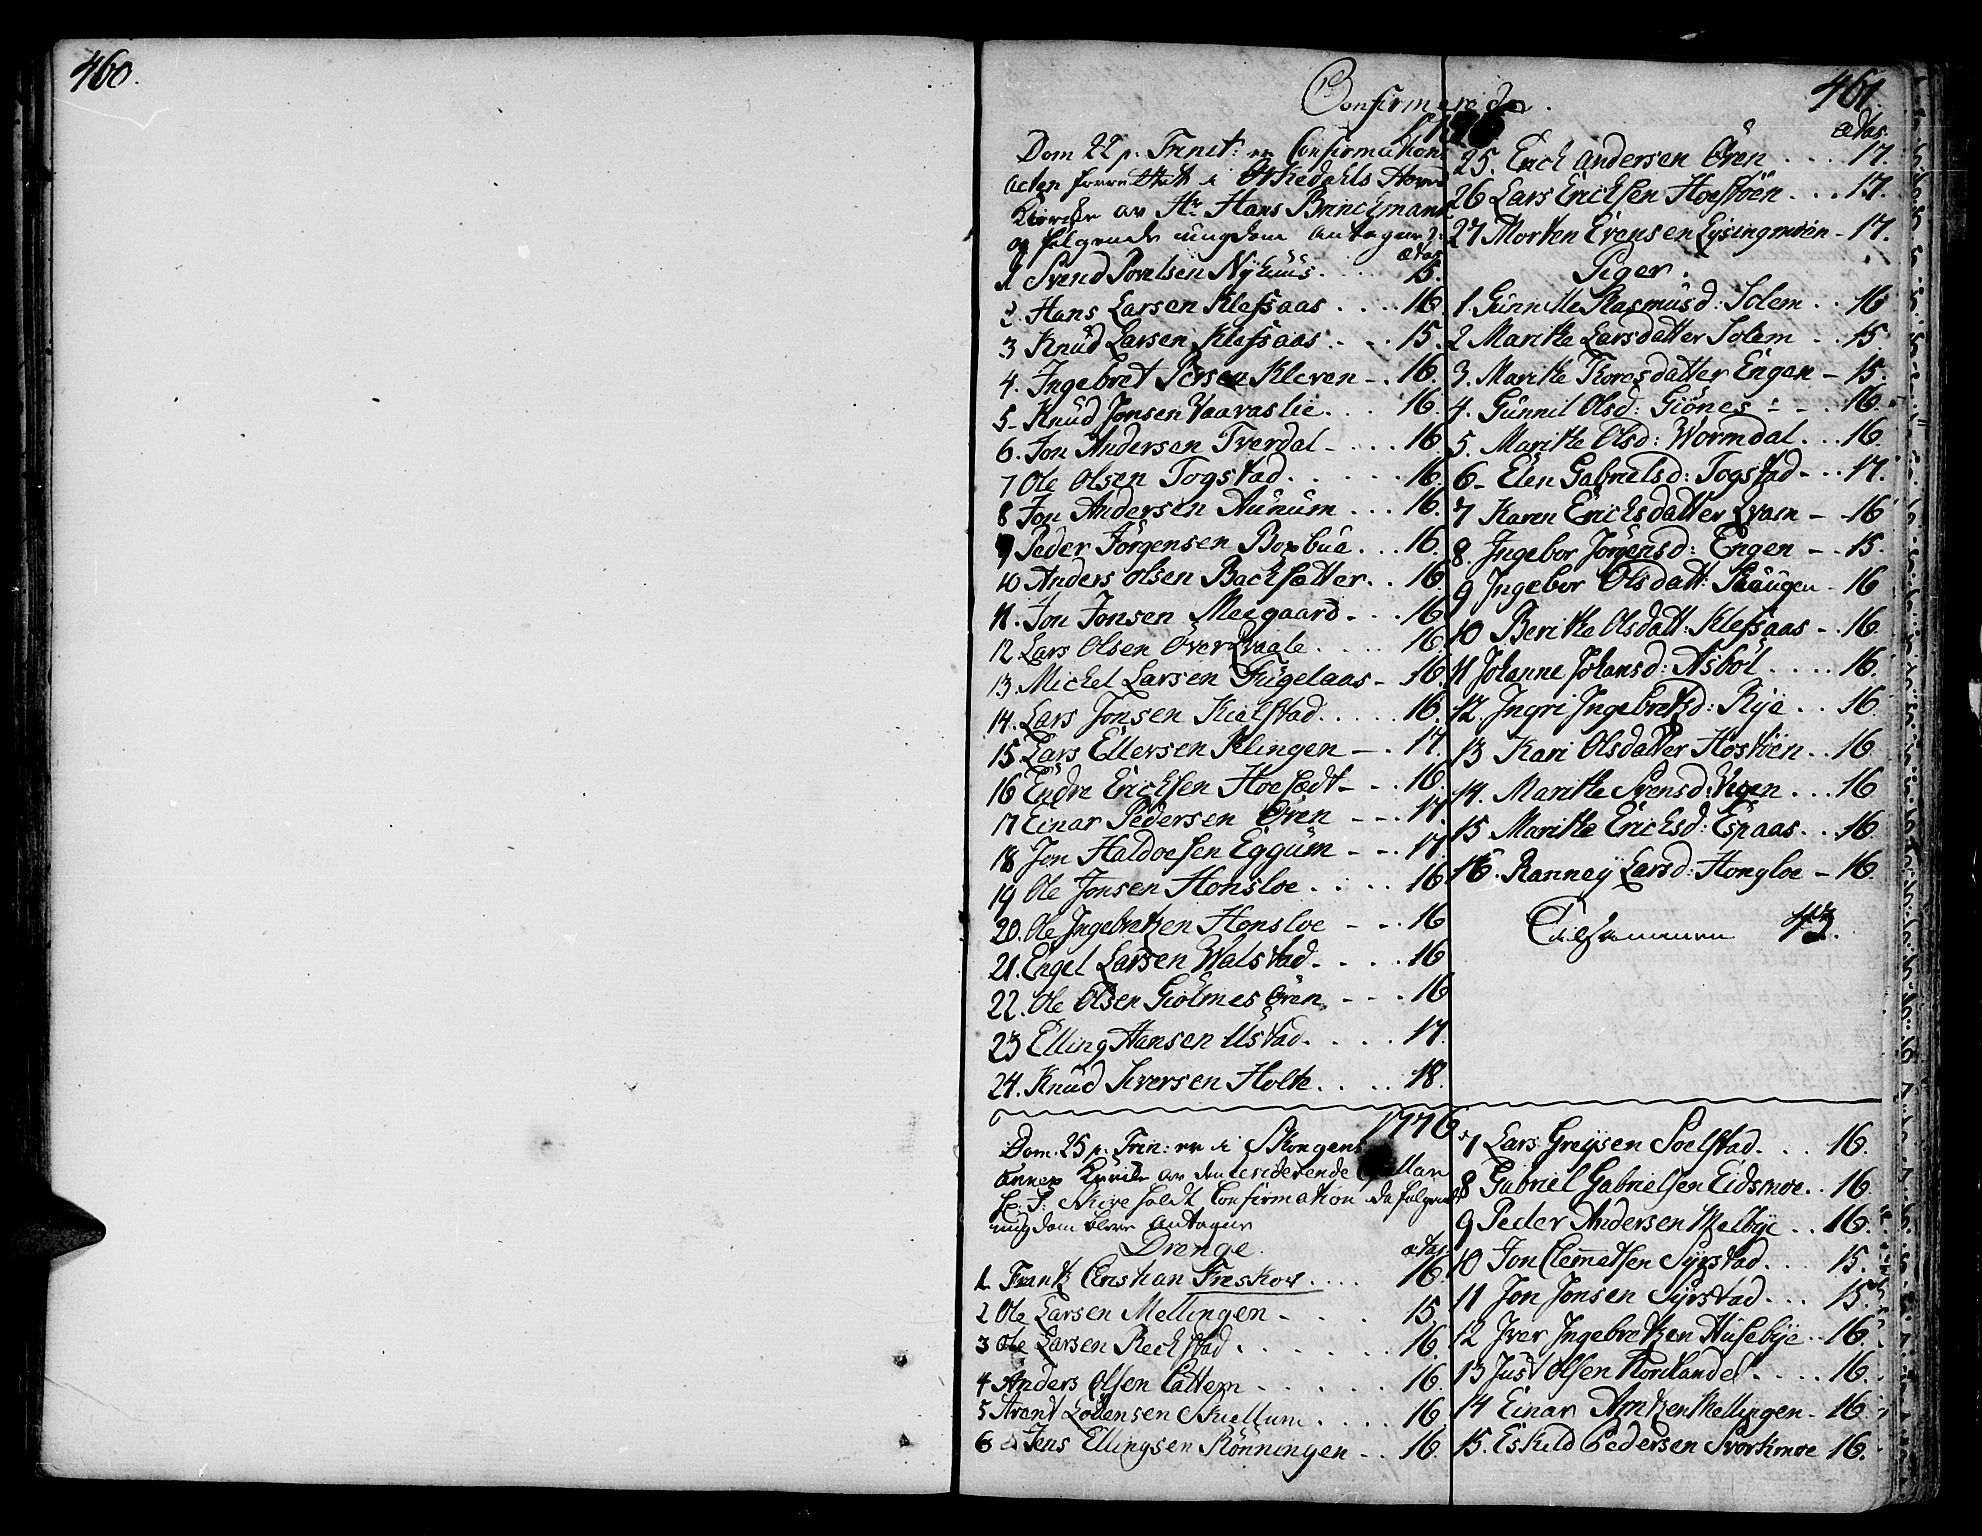 460.
461.
Confirmerede.
1776
Dom 22 p. Trinit: er Confirmations
acten forrettet i Orkedahls Hoved
Kircke av Hr. Hans Brinckmann
og følgende ungdom antagen:
ætas
1 Svend Povelsen Nÿhuus. 15.
2. Hans Larsen Klefsaas . . . . 16
3 Knud Larsen Klefsaas . . . 15.
4. Ingebret Persen Kleven - . 16.
5- Knud Jonsen Vaavaslie. . . . 16.
6. Jon Andersen Tverdal - . . . 16
7 Ole Olsen Togstad . . . . . 16.
8 Jon Andersen Aunum . . . 16.
9 Peder Jörgensen Boxbue. . . 16.
10 Anders Olsen Backsætter. . 16
11. Jon Jonsen Meegaard - . . 16
12 Lars Olsen Över Qvaale . . . . 16
13 Michel Larsen Fugelaas - 16.
14. Lars Jonsen Kielstad . . . . . 16.
15 Lars Ellersen Klingen - . 17.
16 Endre Ericksen Hoefsedt - . . 16.
17 Einar Pedersen Ören - - . 17.
18 Jon Haldoesen Eggum - - . 17
19 Ole Jonsen Honsloe . . . . 16
20. Ole Ingebretzen Honsloe - - . 16
21. Engel Larsen Walstad - . . . 16
22. Ole Olsen Giölmes Ören - - . 16
23 Elling Hansen Ustad. . . . . 17.
24. Knud Iversen Holte. . . . . 18.
ætas.
25. Erich Andersen Ören . . . 17.
26 Lars Ericksen Hoestöen . . . 17.
27 Morten Evensen Lysingmoen - 17.
Piger.
1. Gunnille Rasmusd: Solem . . 16
2 Maritte Larsdatter Solem . . 15
3. Maritte Toresdatter Engen - 15.
4. Gunnil Olsd: Giönes - - . 16.
5. Maritte Olsd: Wormdal. . . 16.
6 - Elen Gabrielsd: Togstad - . . 17.
7 Karen Ericksdatter Qvam - 16
8. Ingebor Jörgensd: Engen - 15.
9 Ingebor Olsdatt: Skaugen - 16
10 Beritte Olsdatt: Klefsaas - . 16.
11 Johanne Johansd: Asböl . . . . 16.
12. Ingri Ingebretzd: Rye . . 16.
13 Kari Olsdatter Hostöen . . 16
14. Maritte Svensd: . . . 16
15 Maritte Ericksd: Espaas . . 16
16. Ranney Larsd: Hongloe - 16.
Tilsammen 43.
1776
Dom. 25 p. Trin: er i Skongens
annex Kircke av den residerende Capellan
Hr. J: Schive holdt Confirmation da følgende
ungdom bleve antagen
Drenge. ætas.
1. Frantz Christian Freskow . . . . 16
2 Ole Larsen Mellingen - . . . 15
3 Ole Larsen Reckstad . . . . . . 16.
4 Anders Olsen Cattem - . . . . 16
5 Arent Lodensen Skiellum . . . . 16
6 Jens Ellingsen Rönningen - . 16.
7 Lars Greysen Soelstad. . . 16.
8 Gabriel Gabrielsen Eidsmoe. . 16
9 Peder Andersen Melbye . . 16.
10 Jon Clemetsen Syrstad. . . 15.
11 Jon Jonsen Syrstad. . . 15
12 Iver Ingebretzen Husebye . . 16
13 Just Olsen Kornlandet . . . . 16.
14 Einar Arntzen Mellingen - 16
15. Eskild Pedersen Svorkmoe 16.